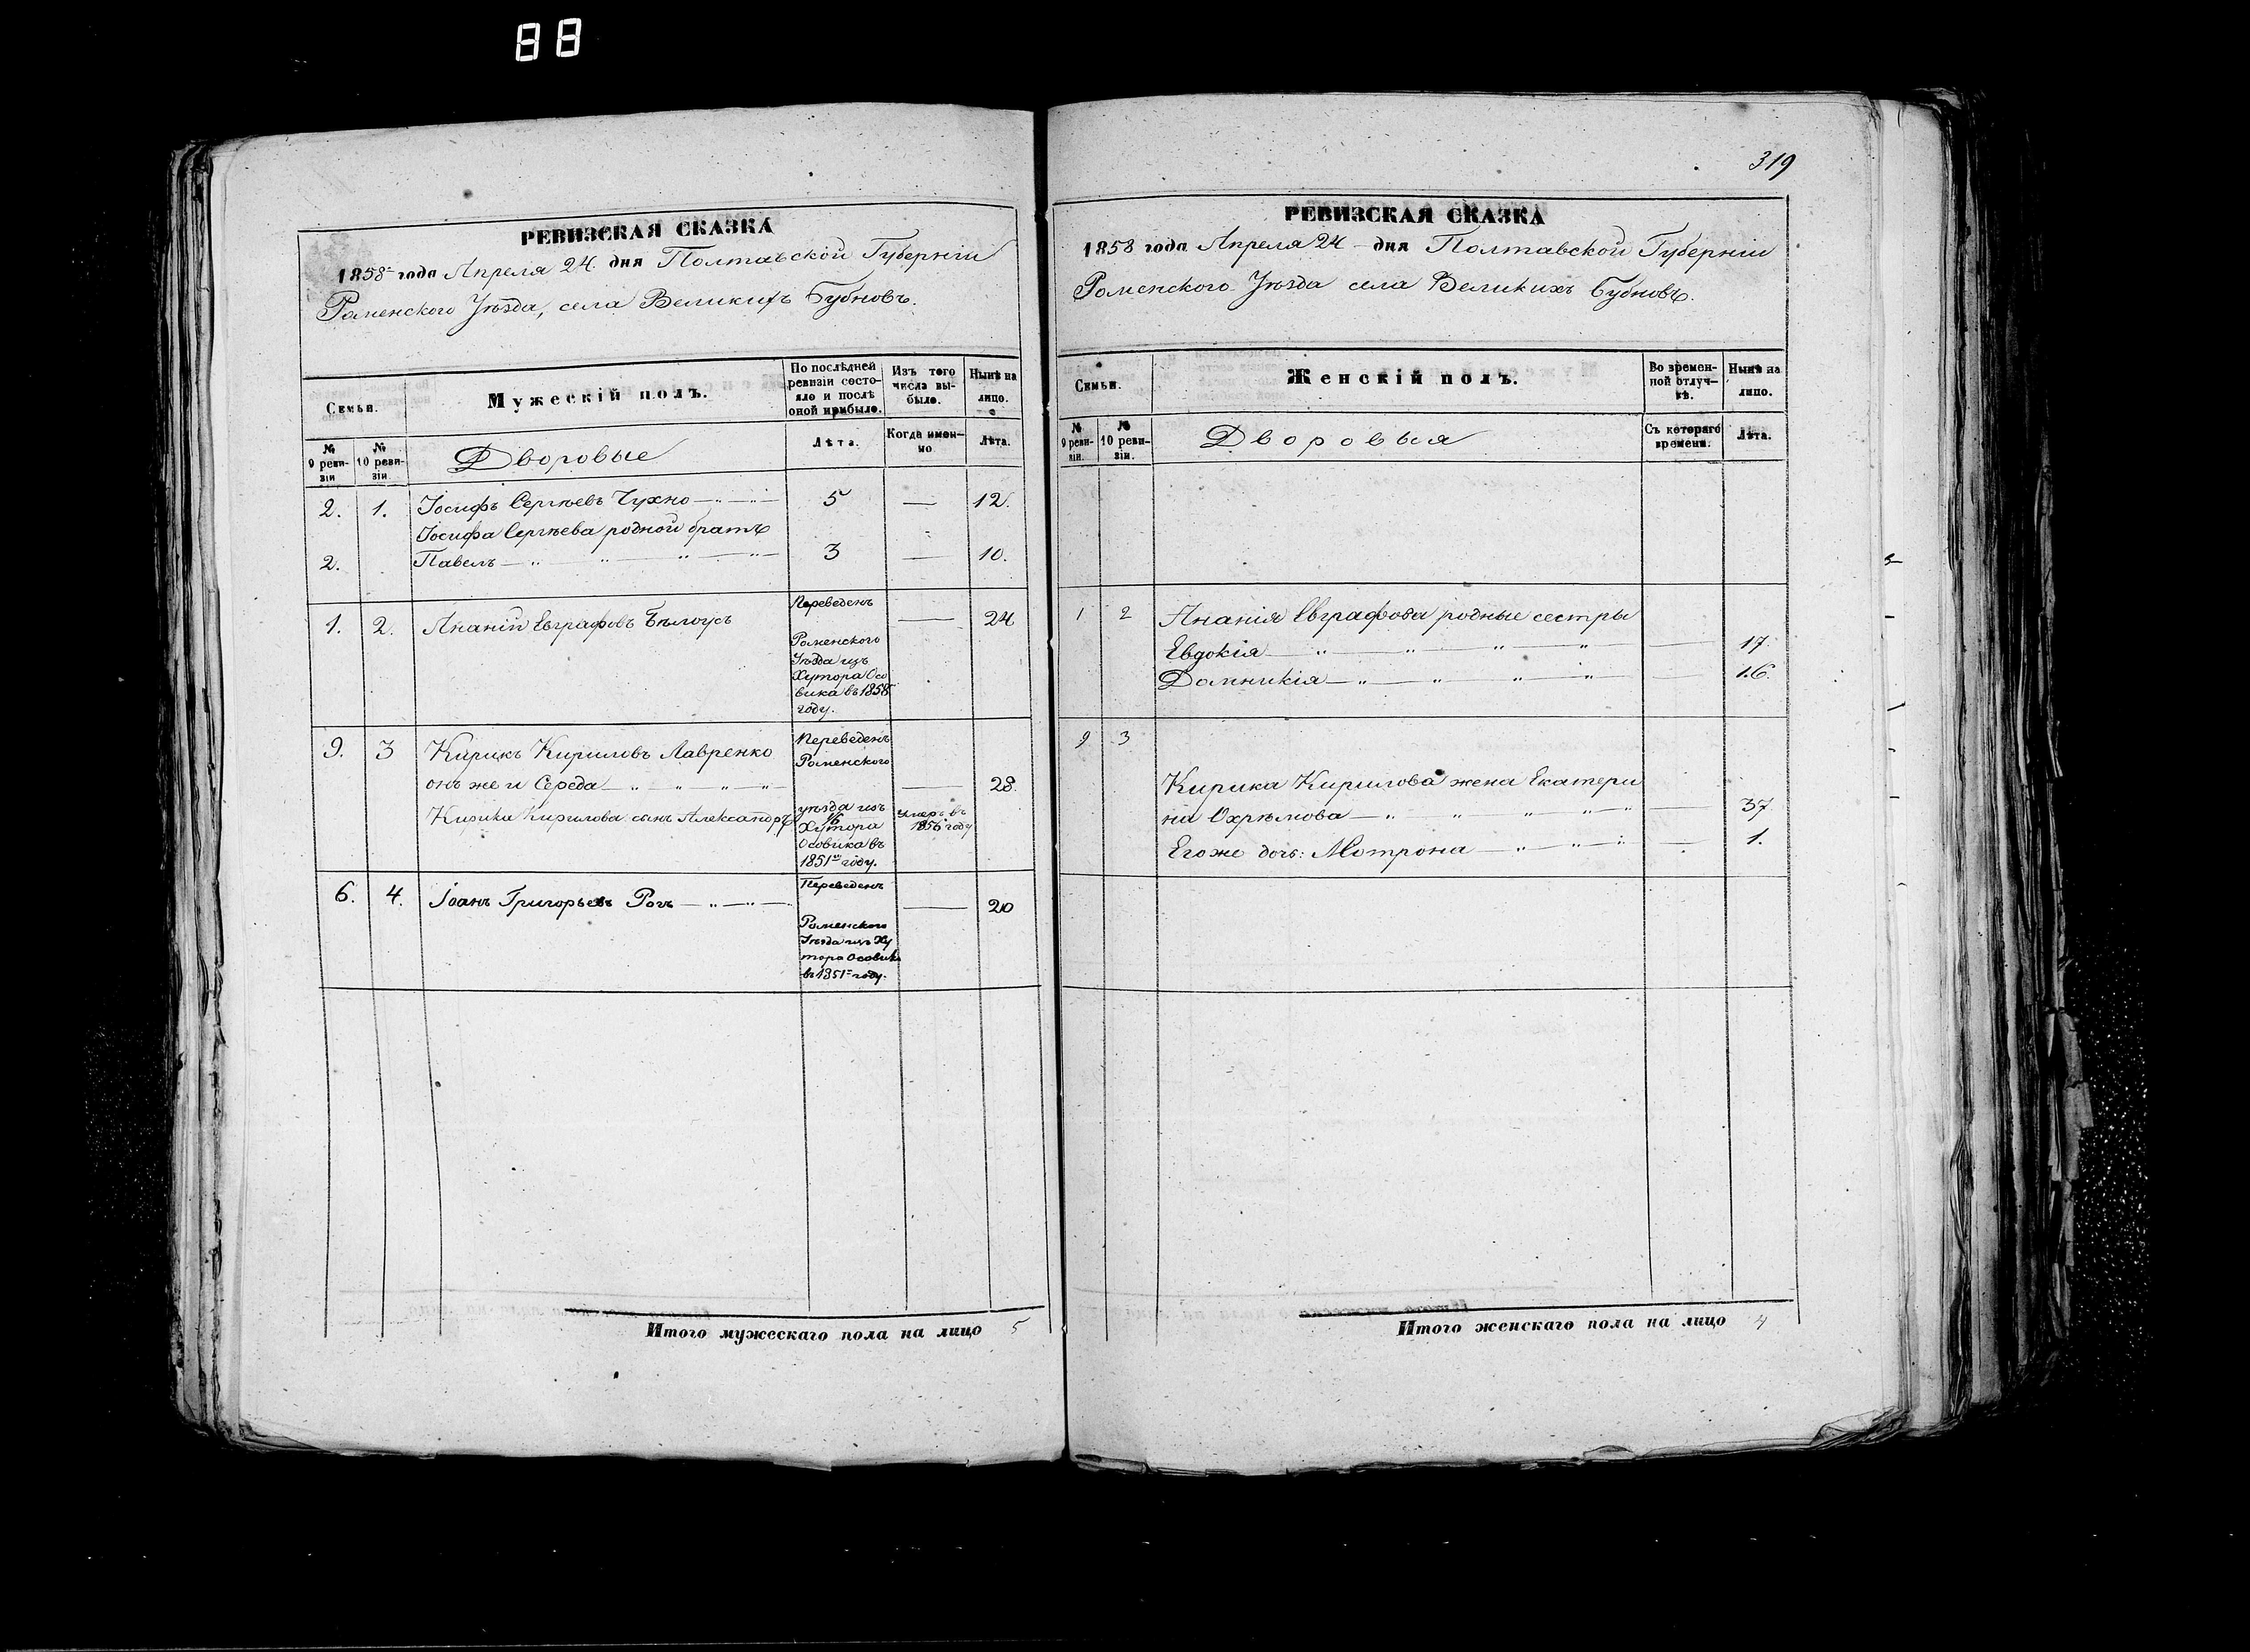 88
РЕВИЗСКАЯ СКАЗКА
1858 года Апреля 24 дня Полтавской Губерніи
Роменского Уѣзда, села Великихъ Бубновъ.
Семьи.
Мужескій полъ.
По послѣдней ревизіи состояло и послѣ оной прибыло.
Изъ того числа выбыло.
Нынѣ на лицо.
№ 9 ревизіи
№ 10 ревизіи.
Дворовые
Лѣта.
Когда именно
Лѣта.
2. 1. Іосифъ Сергѣевъ Чухно 5 — 12.
Іосифа Сергѣева родной братъ
2. Павелъ 3 — 10.
1. 2. Ананій Евграфовъ Бѣлоусъ — 24
Переведенъ
Роменского
Уѣзда изъ
Хутора Осо
вика въ 1858
году.
9. 3 Кирикъ Кириловъ Лавренко
онъ же и Середа — 28.
Кирика Кирилова сынъ Александръ
Переведенъ
Роменского
уѣзда изъ
Хутора
Осовика въ
1851 году.
умеръ въ
1856 году
6. 4. Іоанъ Григорьевъ Рогъ — 20
Переведенъ
Роменского
Уѣзда изъ Ху
тора Осовика
въ 1851 году.
Итого мужескаго пола на лицо 5
319
РЕВИЗСКАЯ СКАЗКА
1858 года Апреля 24 дня Полтавской Губерніи
Роменского Уѣзда села Великихъ Бубновъ.
Семьи.
Женскій полъ.
Во временной отлучкѣ.
Нынѣ на лицо.
№ 9 ревизіи.
№ 10 ревизіи.
Дворовыя
Съ котораго времени.
Лѣта.
1 2 Ананія Евграфова родные сестры
Евдокія — 17.
Домникія — 16.
9 3
Кирика Кирилова жена Екатери
на Охрѣмова — 37.
Его же дочь: Мотрона — 1.
Итого женскаго пола на лицо 4